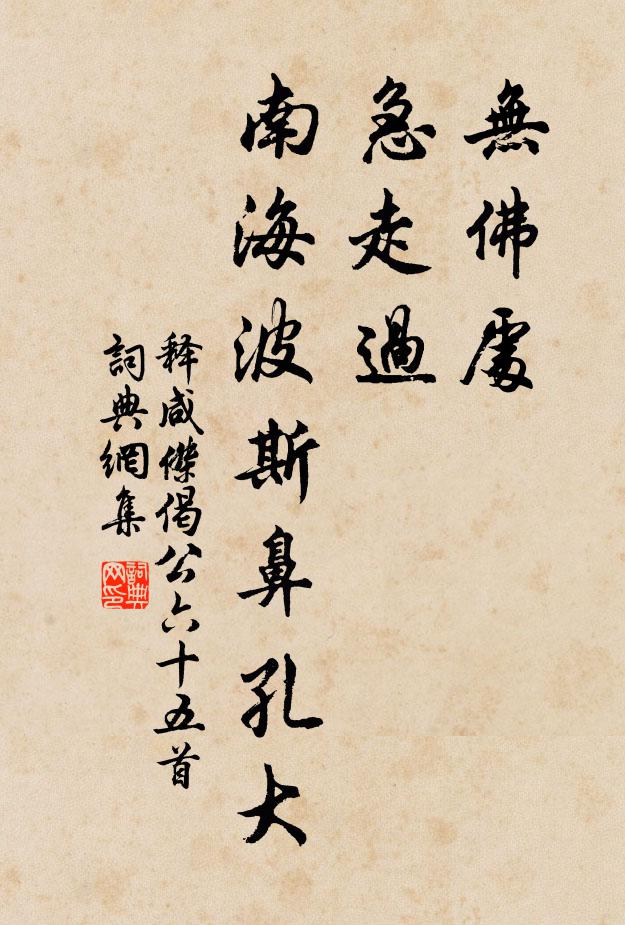 無佛處
急走過
南海波斯鼻孔大
释咸傑偈公六十五首
詞典網集
詞典网印